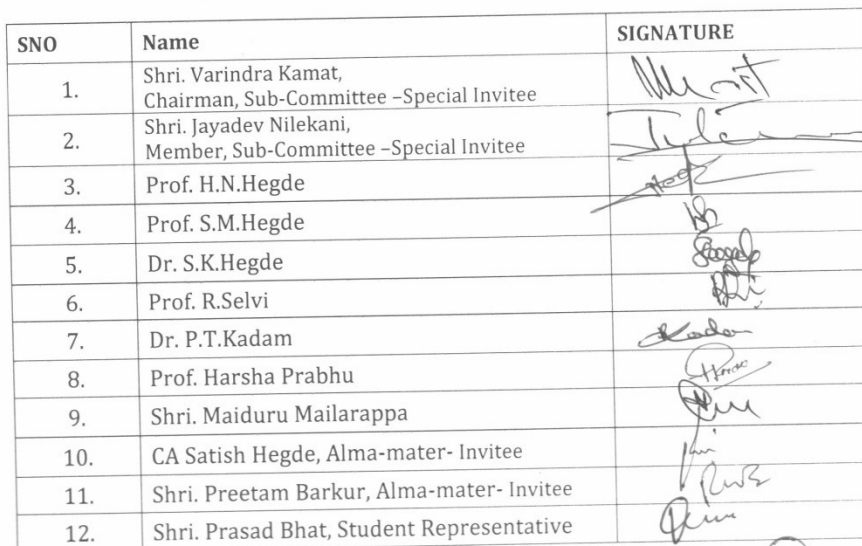 SNO Name SIGNATURE
1. Shri. Varindra Kamat,
Chairman, Sub-Committee –Special Invitee
2. Shri. Jayadev Nilekani,
Member, Sub-Committee –Special Invitee
3. Prof. H.N.Hegde
4. Prof. S.M.Hegde
5. Dr. S.K.Hegde
6. Prof. R.Selvi
7. Dr. P.T.Kadam Kadam
8. Prof. Harsha Prabhu
9. Shri. Maiduru Mailarappa
10. CA Satish Hegde, Alma-mater- Invitee
11. Shri. Preetam Barkur, Alma-mater- Invitee
12. Shri. Prasad Bhat, Student Representative